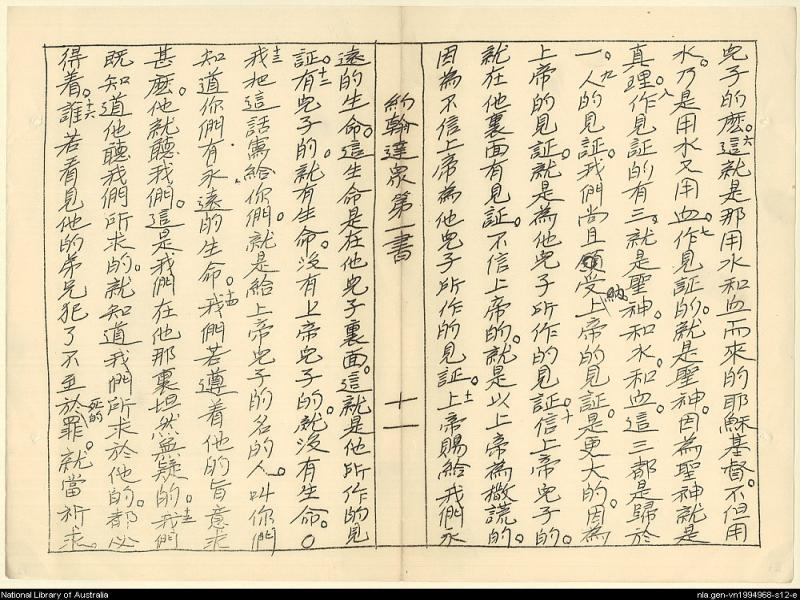 兒子的麽。六這就是那用水和血而來的耶穌基督。不但用
水。乃是用水又用血。七作見証的。就是聖神。因為聖神就是
真理。八作見証的有三。就是聖神。和水。和血。這三都是歸於
一。九人的見証。我們尚且領受。上帝的見証。是更大的。因為
納
上帝的見証。就是為他兒子所作的見証。十信上帝兒子的。
就在他裏面有見証。不信上帝的。就是以上帝為撒謊的。
因為不信上帝為他兒子所作的見証。十一上帝賜給我們永
約翰達衆第一書
十一
遠的生命。這生命是在他兒子裏面。這就是他所作的見
証。十二有兒子的。就有生命。沒有上帝兒子的。就沒有生命。〇
十三我把這話寫給你們。就是給上帝兒子的名的人。叫你們
知道你們有永遠的生命。十四我們若遵着他的旨意求
甚麽。他就聽我們。這是我們在他那裏坦然無疑的。十五我們
既知道他聽我們所求的。就知道我們所求於他的。都必
得着。十六誰若看見他的弟兄犯了不至於罪。就當祈求。
死的
National Library of Australia
nla.gen-vn1994968-s12-e